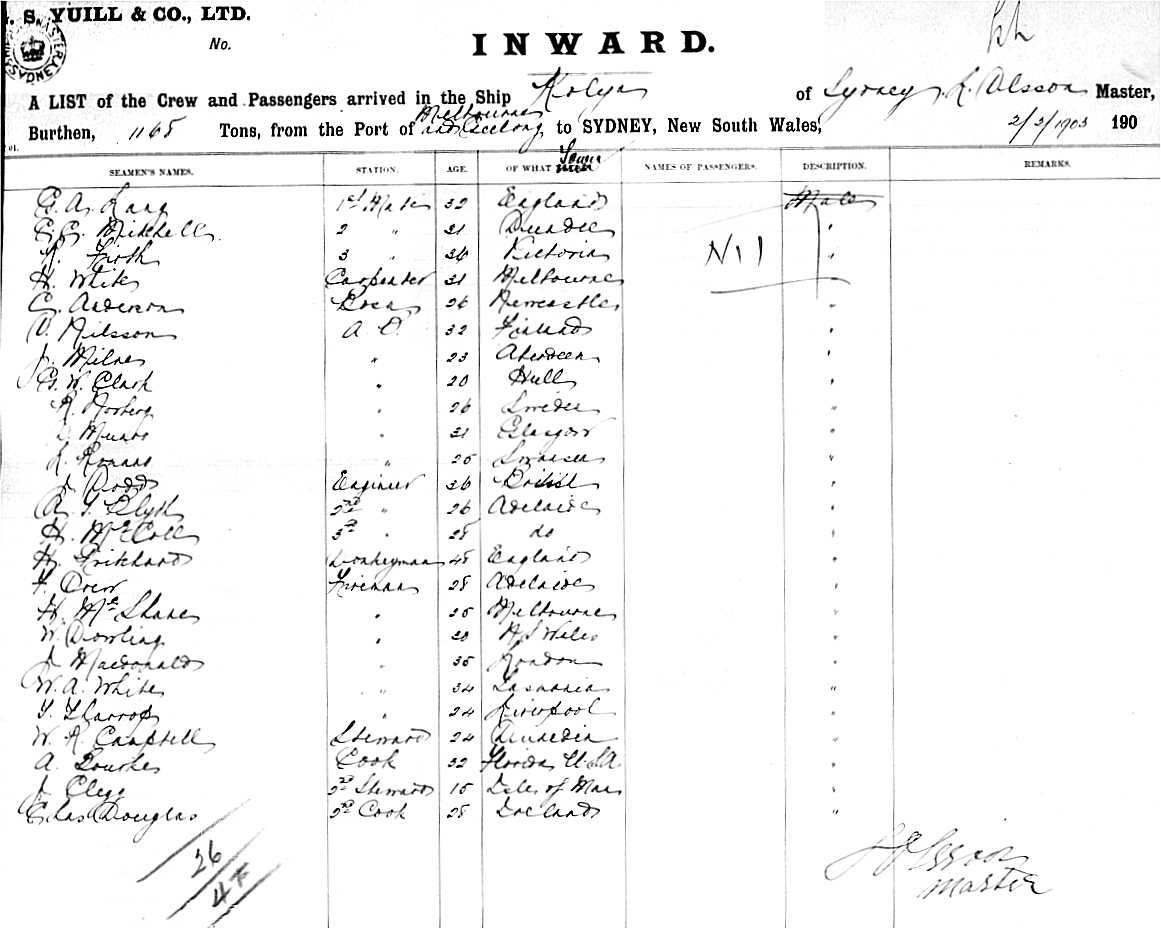 . S. YUILL & CO., LTD.
No.
INWARD.
A LIST of the Crew and Passengers arrived in the Ship Kolya of Sydney, Olsson Master,
Burthen, 1165 Tons, from the Port of Melbourne and Geelong to SYDNEY, New South Wales, 2/3/1903 190
SEAMEN'S NAMES. STATION. AGE. OF WHAT Town NAMES OF PASSENGERS. DESCRIPTION. REMARKS.
G. A. Lang 1st Mate 32 England Male
C. C. Mitchell 2 " 31 Dundee "
Firth 3 " 36 Victoria Nil "
H. White Carpenter 31 Melbourne
C. Anderson 26 Newcastle "
O. Nilsson A. B. 32 Finland "
J. Milne " 23 Aberdeen "
G. W. Clark " 20 Hull "
Norberg " 26 Sweden "
D. Munro " 31 Glasgow "
" 25 Swansea "
J. Dodd Engineer 36 British "
A. G. Blyth 2nd " 26 Adelaide "
H. McColl 3rd " 28 do "
H. Prichard Donkeyman 48 England "
F. Drew Fireman 28 Adelaide "
H. McShane " 25 Melbourne "
W. Dowling " 28 N S Wales "
J. Macdonald " 35 London "
W. A. White " 34 Tasmania "
T. " 24 Liverpool "
W. R. Campbell Steward 24 Dunedin "
A. Bourke Cook 32 Florida U.S.A. "
J. Clegg 2nd Steward 18 Isle of Man "
Chas Douglas 2nd Cook 28 Ireland "
26
Olsson
Master